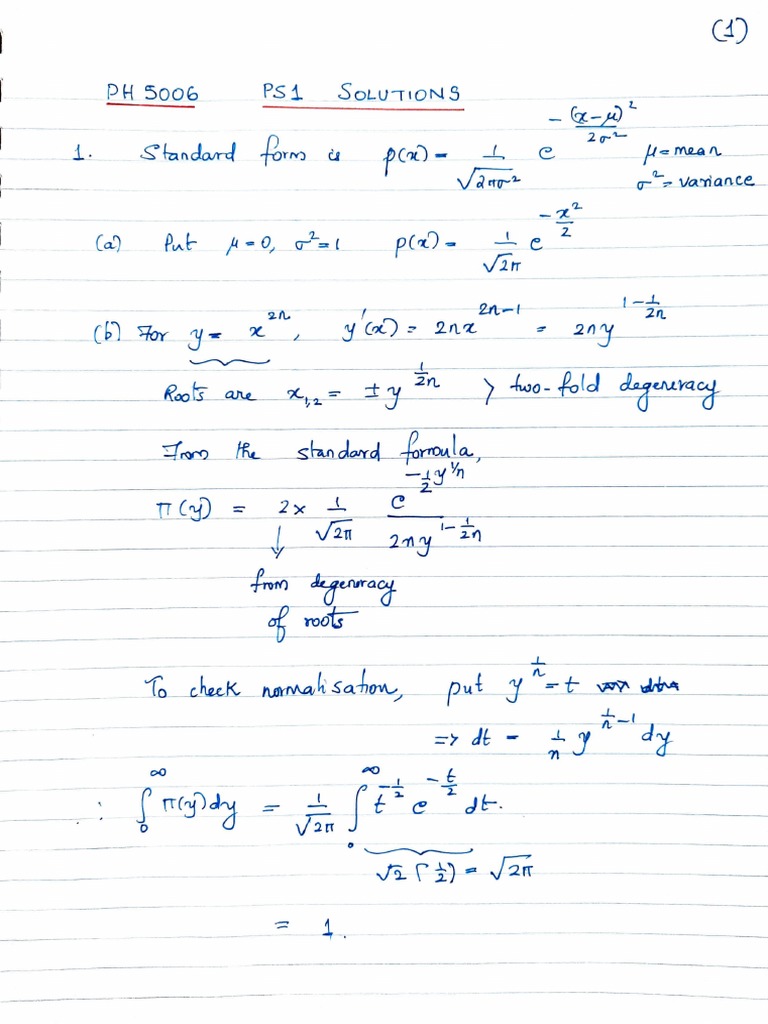 (1)
PH 5006 PS1 SOLUTIONS
1. Standard form is p(x) = 1/√(2πσ²) e^(-(x-μ)²/2σ²) μ = mean
σ² = variance
(a) Put μ = 0, σ² = 1 p(x) = 1/√(2π) e^(-x²/2)
(b) For y = x^(2n), y'(x) = 2nx^(2n-1) = 2ny^(1-1/2n)
Roots are x₁,₂ = ± y^(1/2n) } two-fold degeneracy
From the standard formula,
Π(y) = 2 × 1/√(2π) e^(-½ y^(1/n)) / 2ny^(1-1/2n)
↓
from degeneracy
of roots
To check normalisation, put y^(1/n) = t
=> dt = 1/n y^(1/n - 1) dy
∴ ∫₀^∞ Π(y)dy = 1/√(2π) ∫₀^∞ t^(-1/2) e^(-t/2) dt.
√2 Γ(½) = √(2π)
= 1.